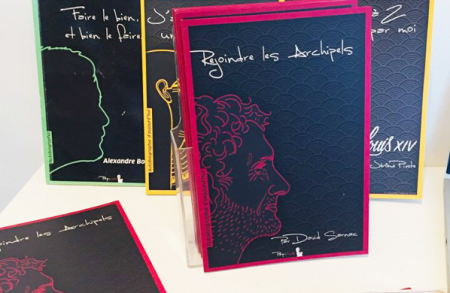 Faire le bien,
et bien le faire
Alexandre Bo
J'a
un
à 2
par moi
Louis XIV
Jérôme Pirate
Rejoindre les Archipels
Par David Sarnac
joindre les Archipels